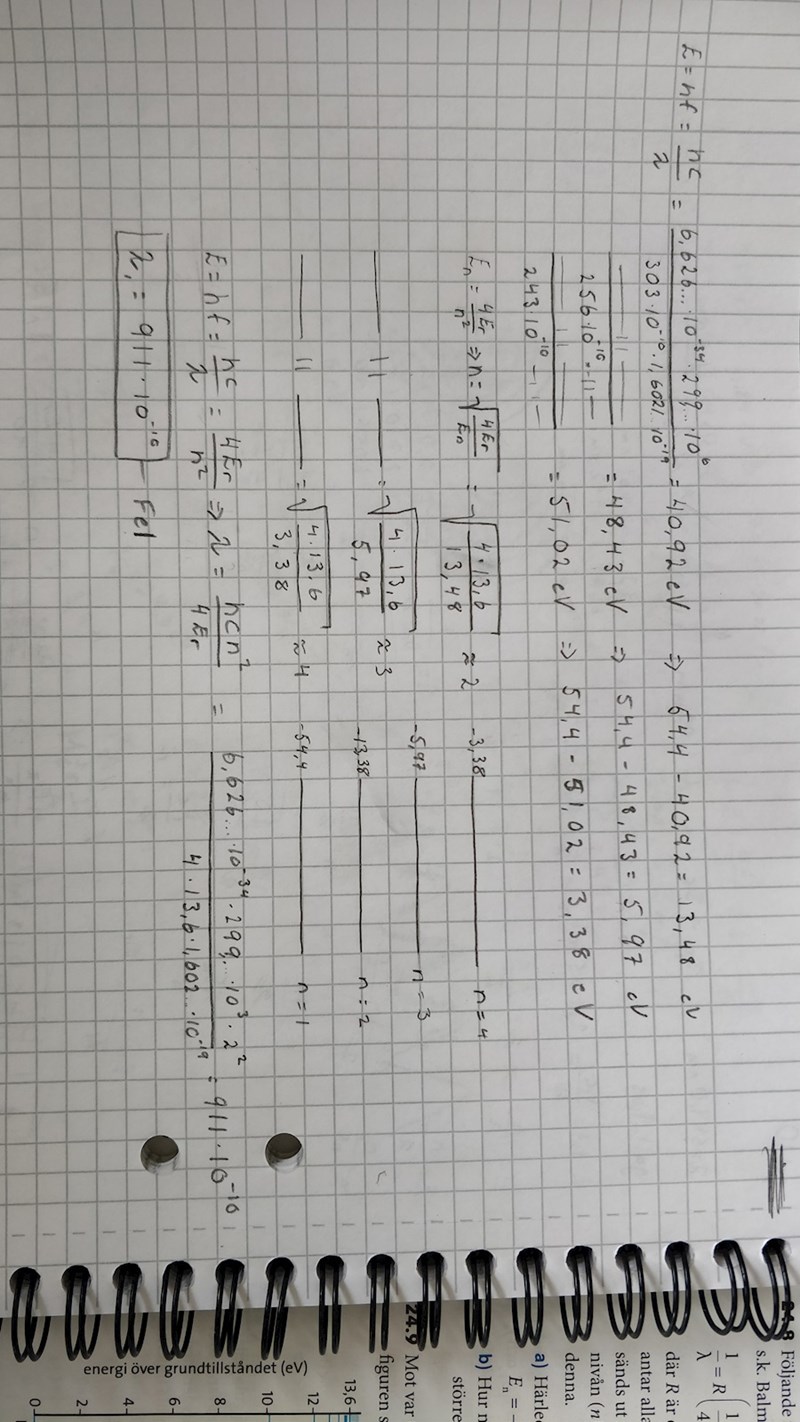 E = hf = hc/λ = 6,626...·10^-34 · 299...·10^6 / 303·10^-10 · 1,6021·10^-19 = 40,92 eV ⇒ 54,4 - 40,92 = 13,48 eV
—— 11 —— / 256·10^-10 · -11- = 48,43 eV ⇒ 54,4 - 48,43 = 5,97 eV
—— 11 —— / 243·10^-10 -11- = 51,02 eV ⇒ 54,4 - 51,02 = 3,38 eV
En = 4Er/n² ⇒ n = √(4Er/En) = √(4·13,6/13,48) ≈ 2
—— 11 —— = √(4·13,6/5,97) ≈ 3
—— 11 —— = √(4·13,6/3,38) ≈ 4
-3,38 —— n=4
-5,97 —— n=3
-13,38 —— n=2
-54,4 —— n=1
E = hf = hc/λ = 4Er/n² ⇒ λ = hcn²/4Er = 6,626...·10^-34 · 299...·10^3 · 2² / 4·13,6·1,602...·10^-19 = 911·10^-10
λ₁ = 911·10^-10 Fel
24.8 Följande
s.k. Balm
1/λ = R (1/4
där R är
antar alla
sänds ut
nivån (n
denna.
a) Härle
En = -
b) Hur
större
24.9 Mot var
figuren s
energi över grundtillståndet (eV)
13,6
12
10
8
6
4
2
0